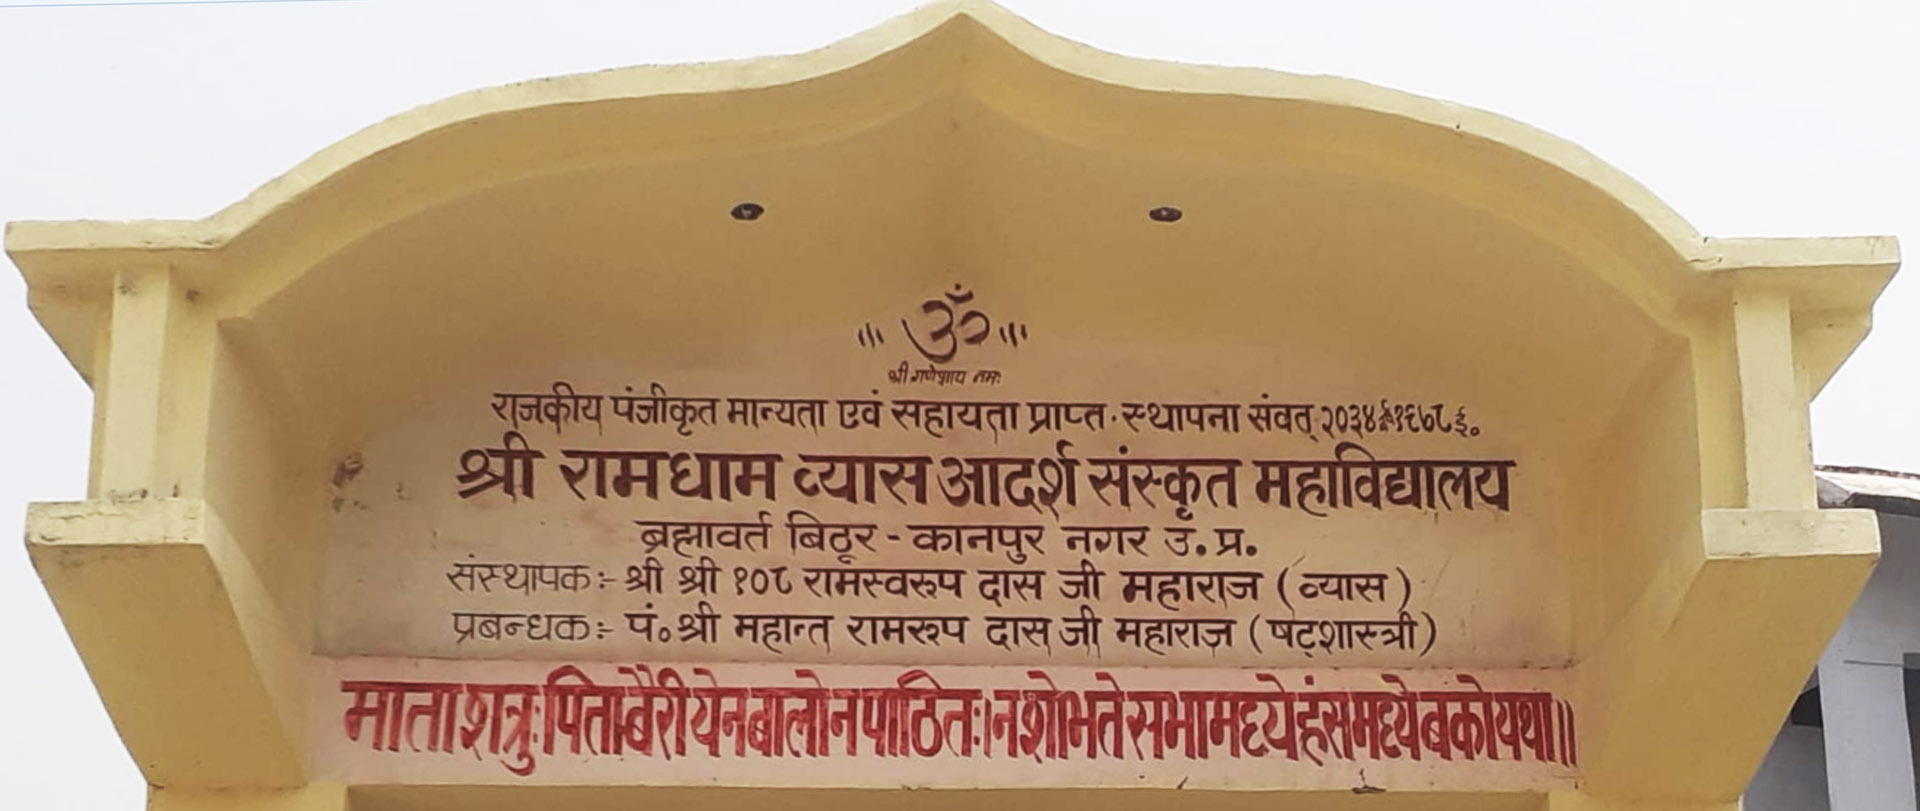 ॐ
श्री गणेशाय नमः
राजकीय पंजीकृत मान्यता एवं सहायता प्राप्त. स्थापना संवत् २०३४ १९७८ ई०
श्री रामधाम व्यास आदर्श संस्कृत महाविद्यालय
ब्रह्मावर्त बिठूर - कानपुर नगर उ. प्र.
संस्थापक :- श्री श्री १०८ रामस्वरुप दास जी महाराज ( व्यास )
प्रबन्धक :- पं० श्री महान्त रामरुप दास जी महाराज़ ( षट्शास्त्री )
माता शत्रुः पिता बैरी येन बालो न पाठितः। न शोभते सभा मध्ये हंस मध्ये बको यथा॥